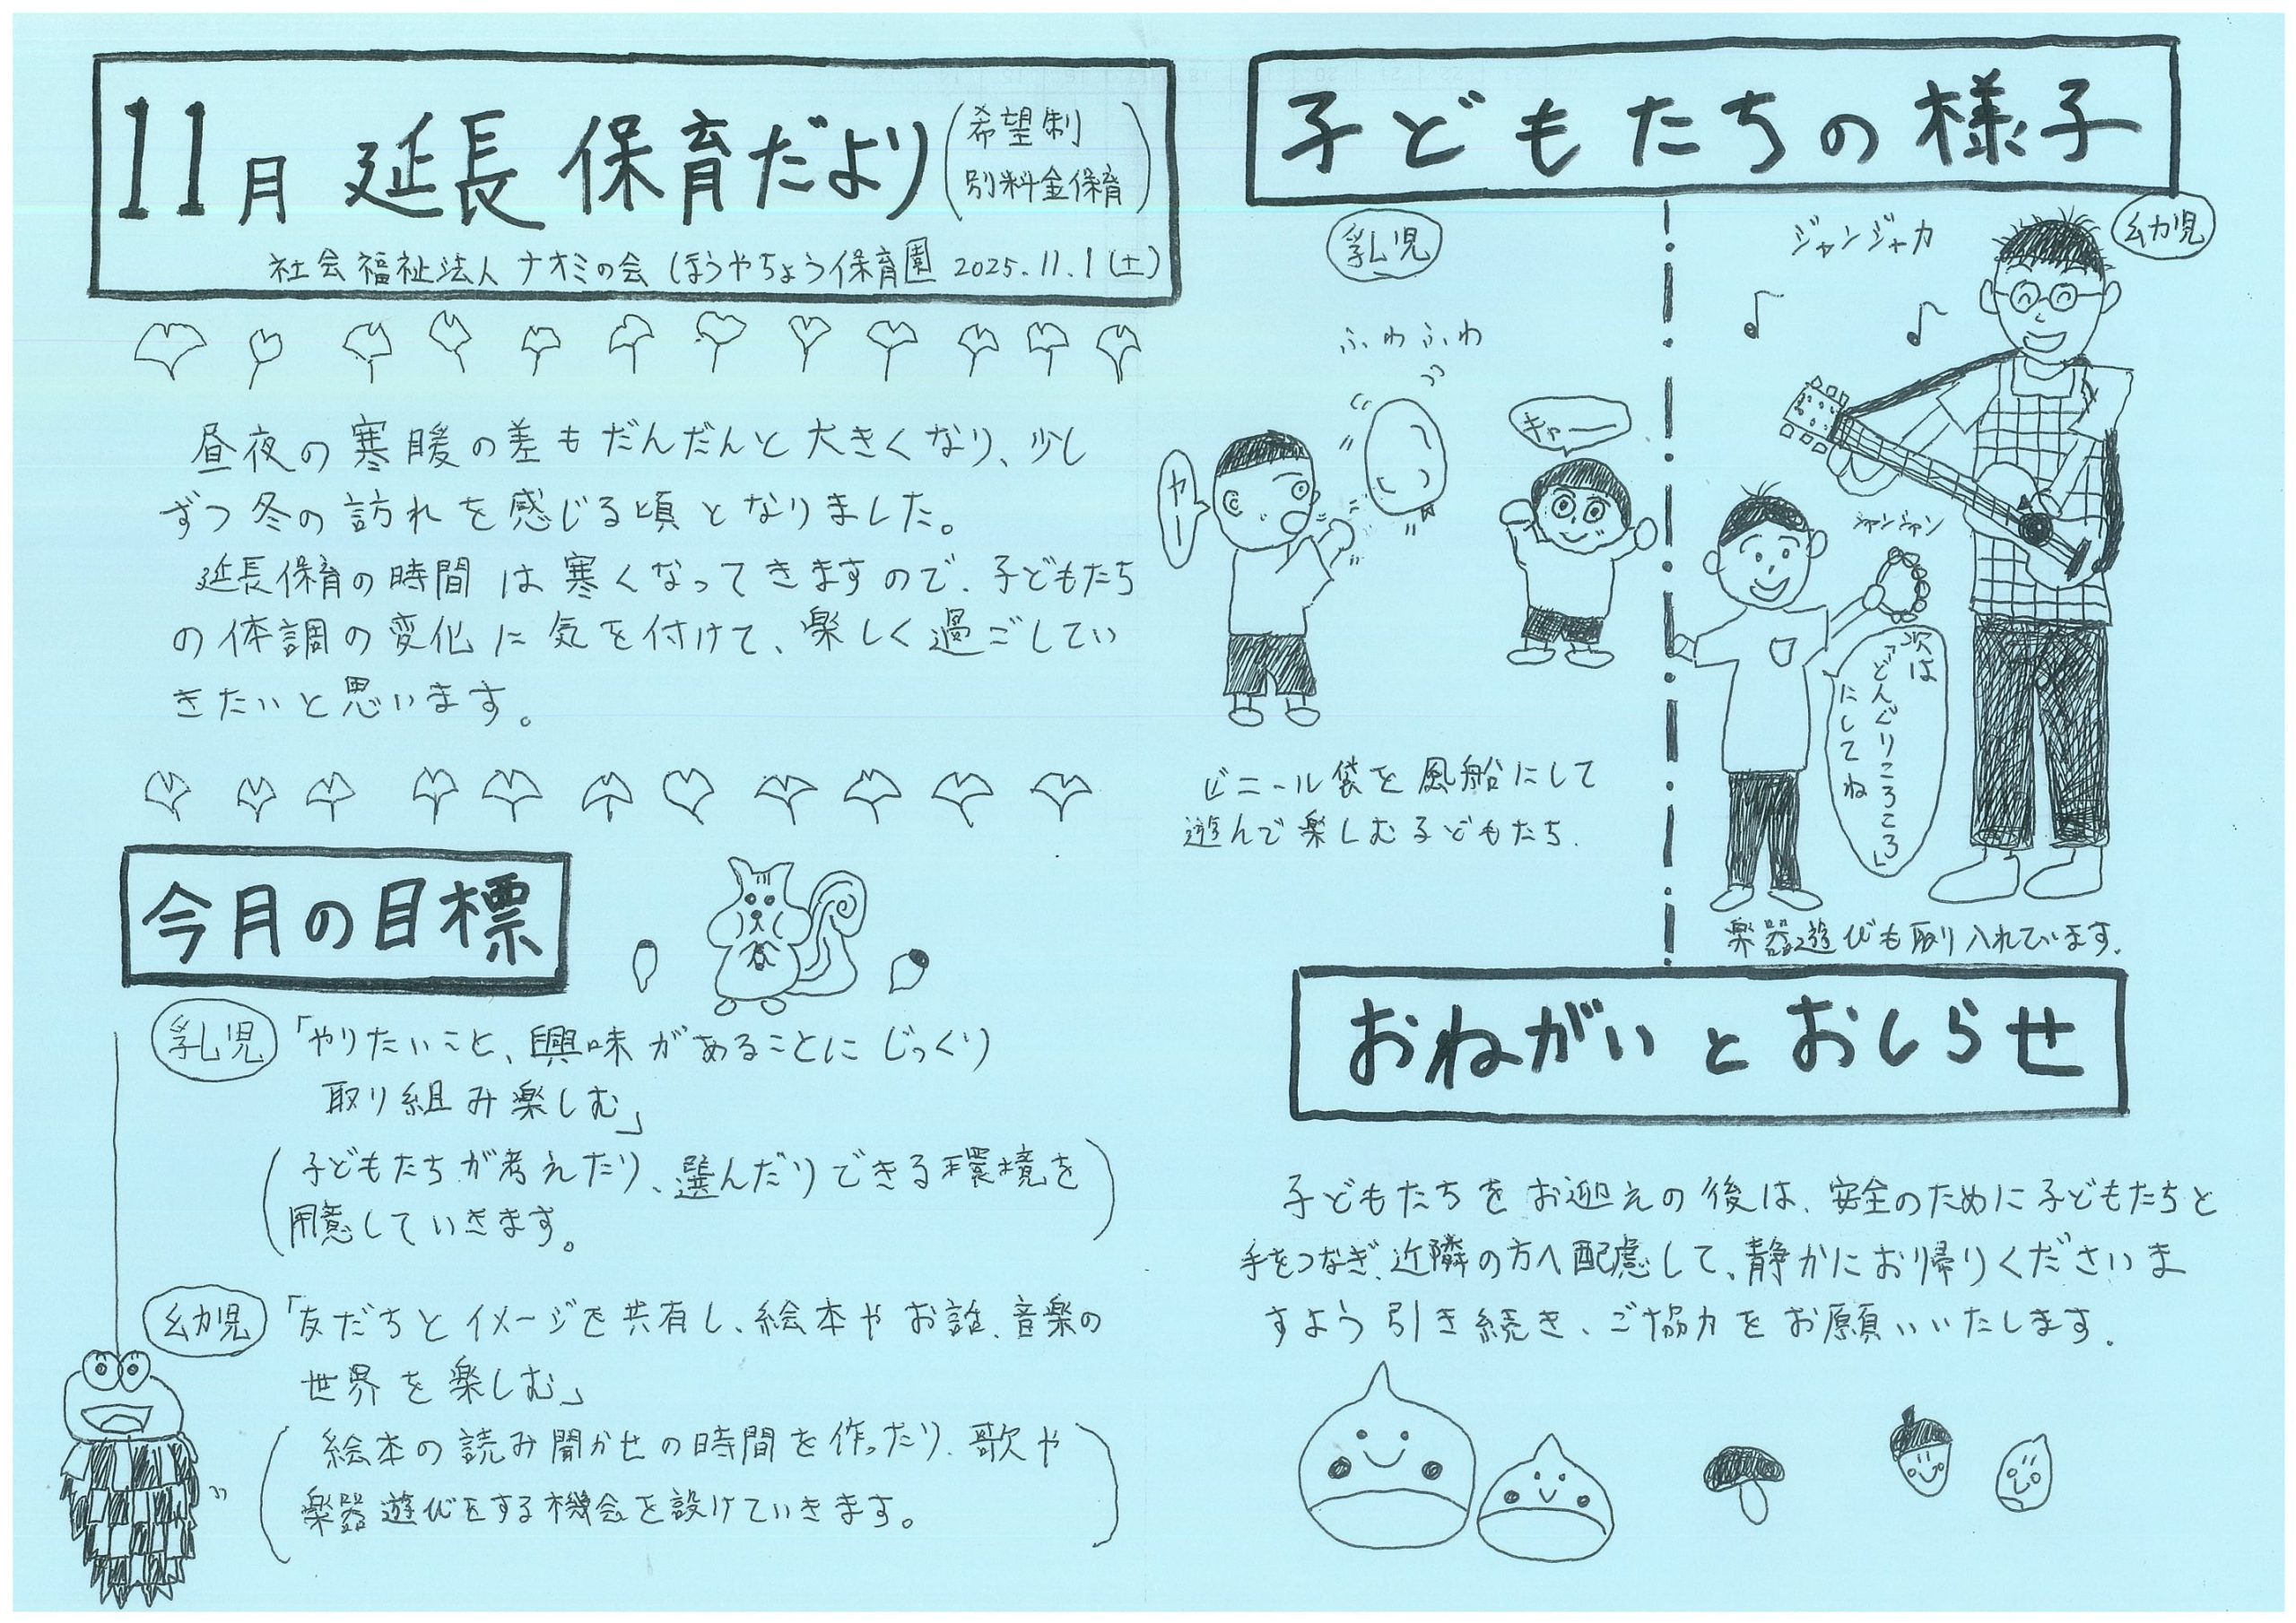 11月 延長保育だより(希望制
別料金保育)
社会福祉法人 ナオミの会 ほうやちょう保育園 2025.11.1(土)
昼夜の寒暖の差もだんだんと大きくなり、少し
ずつ冬の訪れを感じる頃となりました。
延長保育の時間は寒くなってきますので、子どもたち
の体調の変化に気を付けて、楽しく過ごしてい
きたいと思います。
今月の目標
乳児 「やりたいこと、興味があることにじっくり
取り組み楽しむ」
(子どもたちが考えたり、選んだりできる環境を
用意していきます。)
幼児 「友だちとイメージを共有し、絵本やお話、音楽の
世界を楽しむ」
(絵本の読み聞かせの時間を作ったり、歌や
楽器遊びをする機会を設けていきます。)
子どもたちの様子
乳児
ふわふわ
ヤー
キャー
ビニール袋を風船にして
遊んで楽しむ子どもたち.
幼児
ジャンジャカ
シャンシャン
次は
「どんぐりころころ」
にしてね
楽器遊びも取り入れています.
おねがいとおしらせ
子どもたちをお迎えの後は、安全のために子どもたちと
手をつなぎ、近隣の方へ配慮して、静かにお帰りくださいま
すよう引き続き、ご協力をお願いいたします.